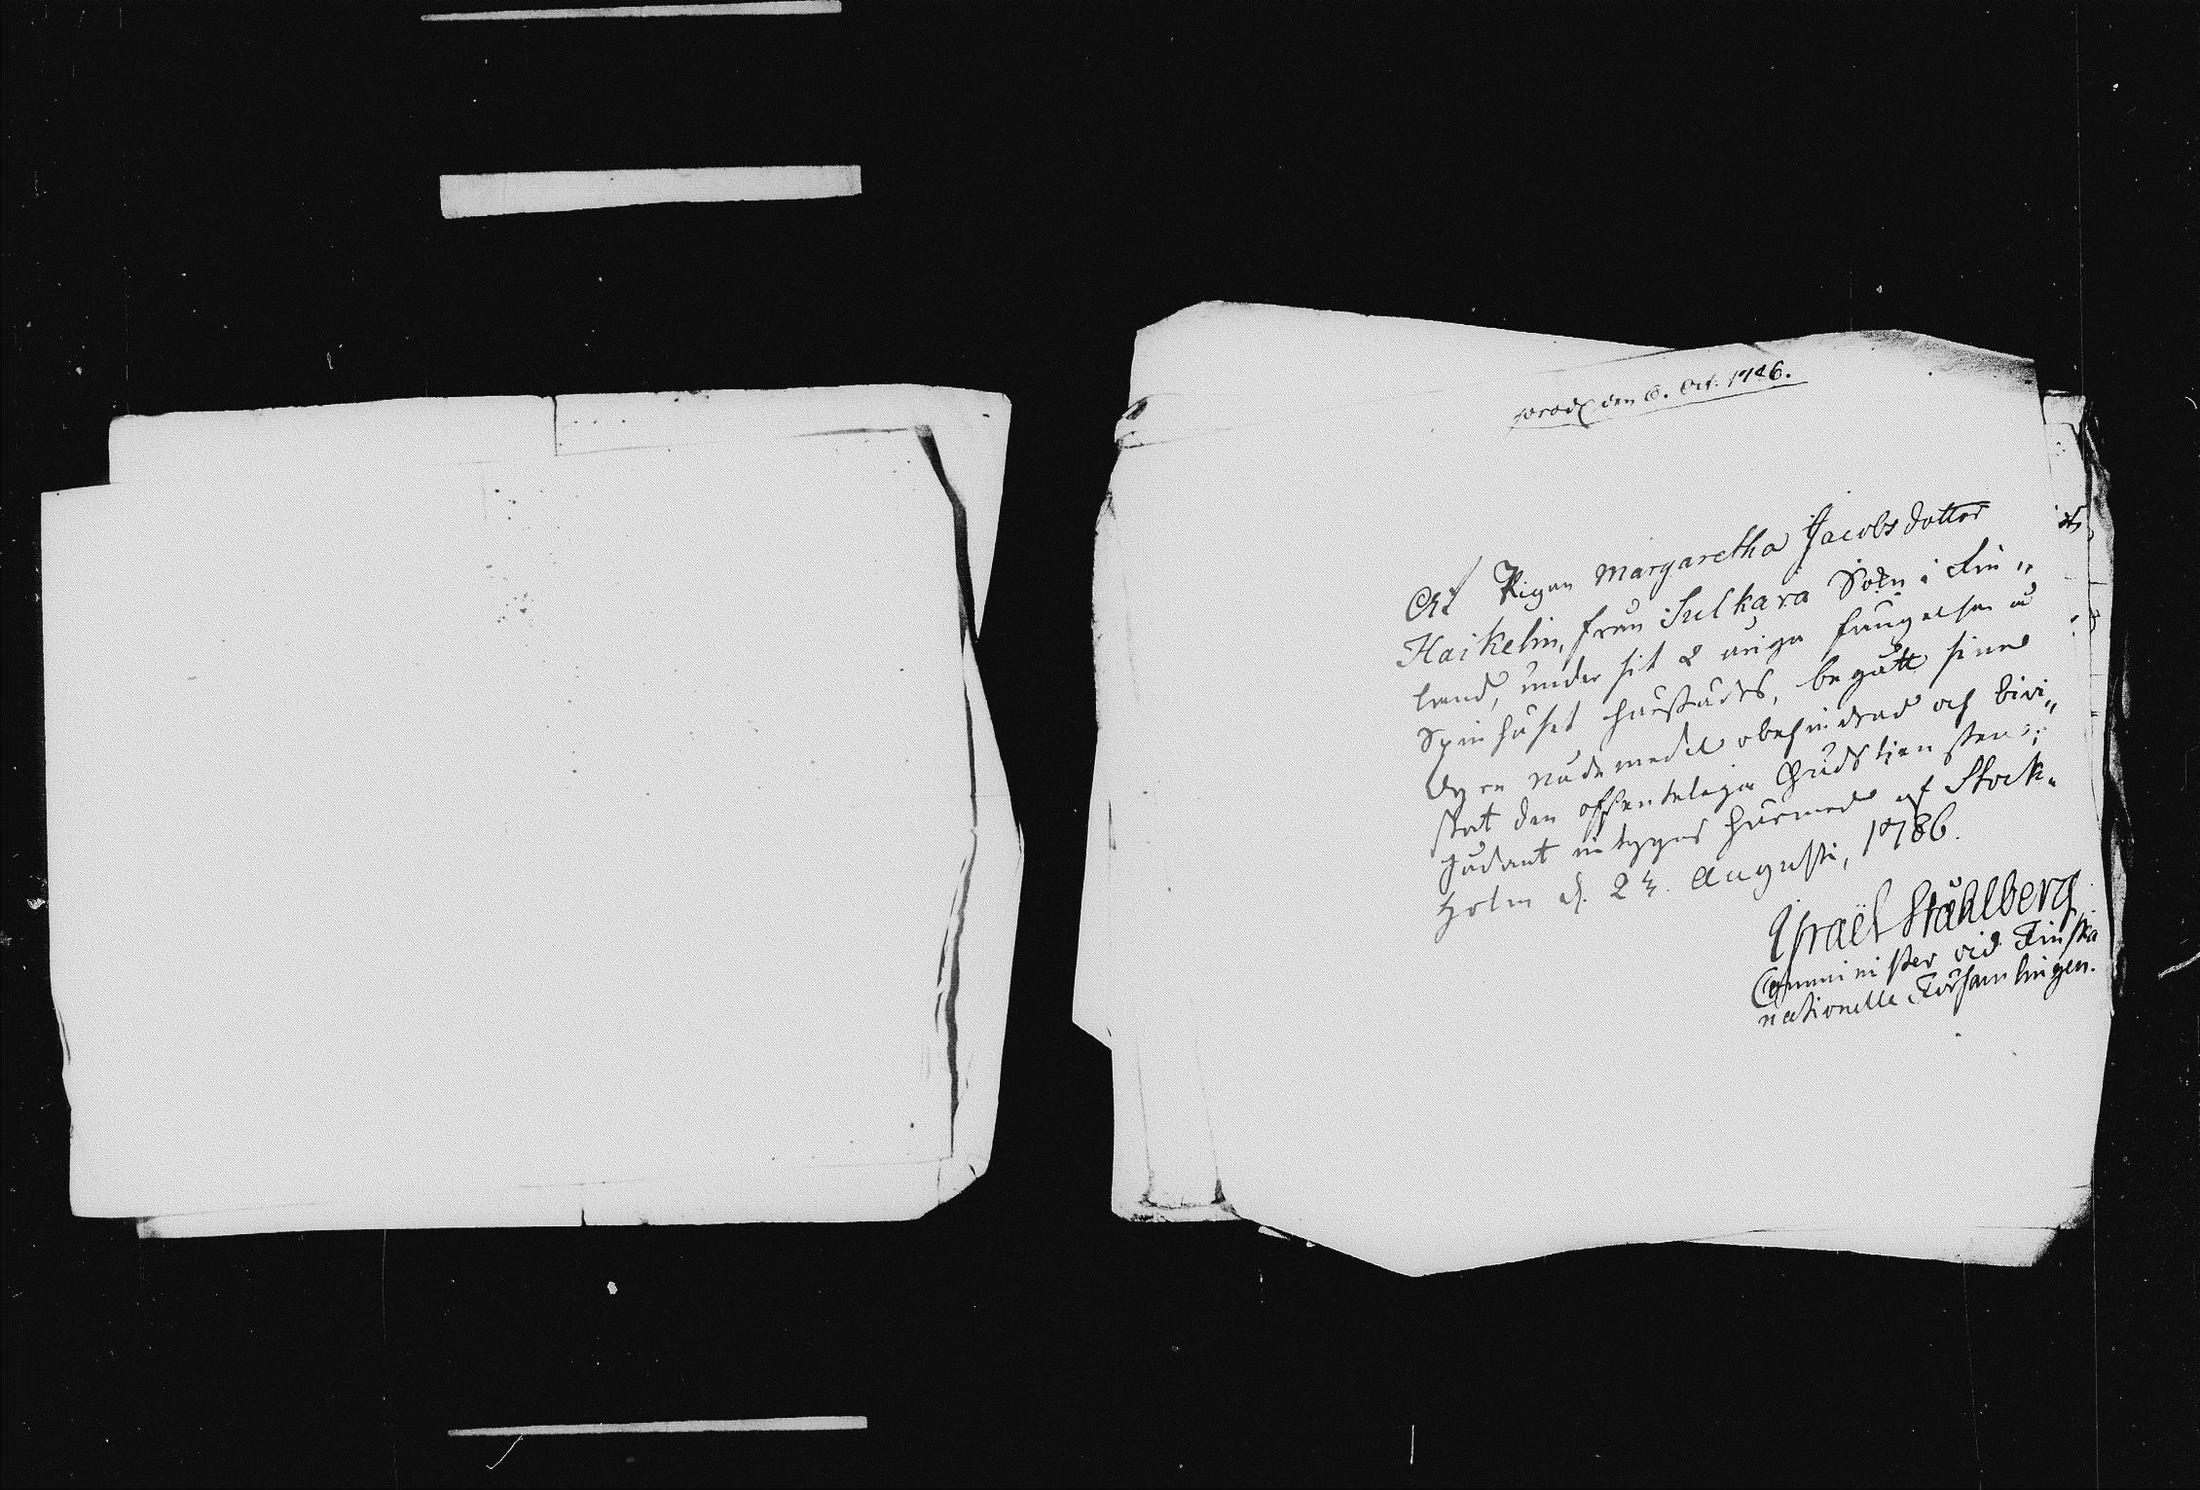 prod den 6. Oct. 1786.
Att Pigan Margaretha Jacobsdotter
Haikelin, från Sulkava Sokn i Fin„
land, under sit 2 åriga fängelse å
Spinhuset härstädes, begått sine
dyre nådemedel obehindrad och bivi„
stat den offenteliga Gudstiensten;
sådant intygas härmed af Stock„
holm d. 24. Augusti, 1786.
Israël Ståhlberg
Comminister vid Finska
nationelle Församlingen.